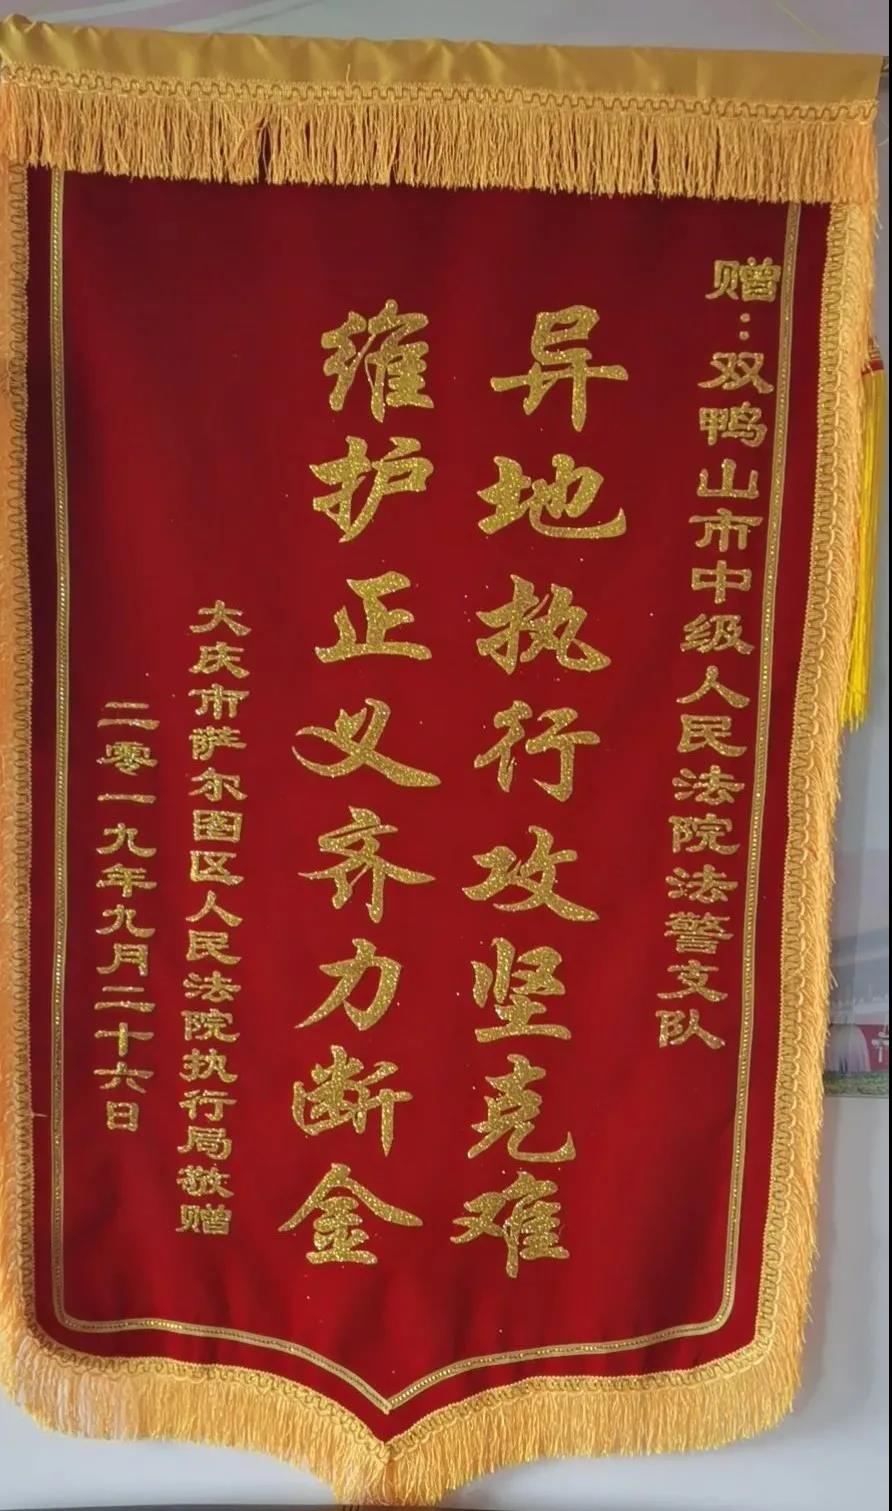 赠：双鸭山市中级人民法院法警支队
异地执行攻坚克难
维护正义齐力断金
大庆市萨尔图区人民法院执行局敬赠
二零一九年九月二十六日